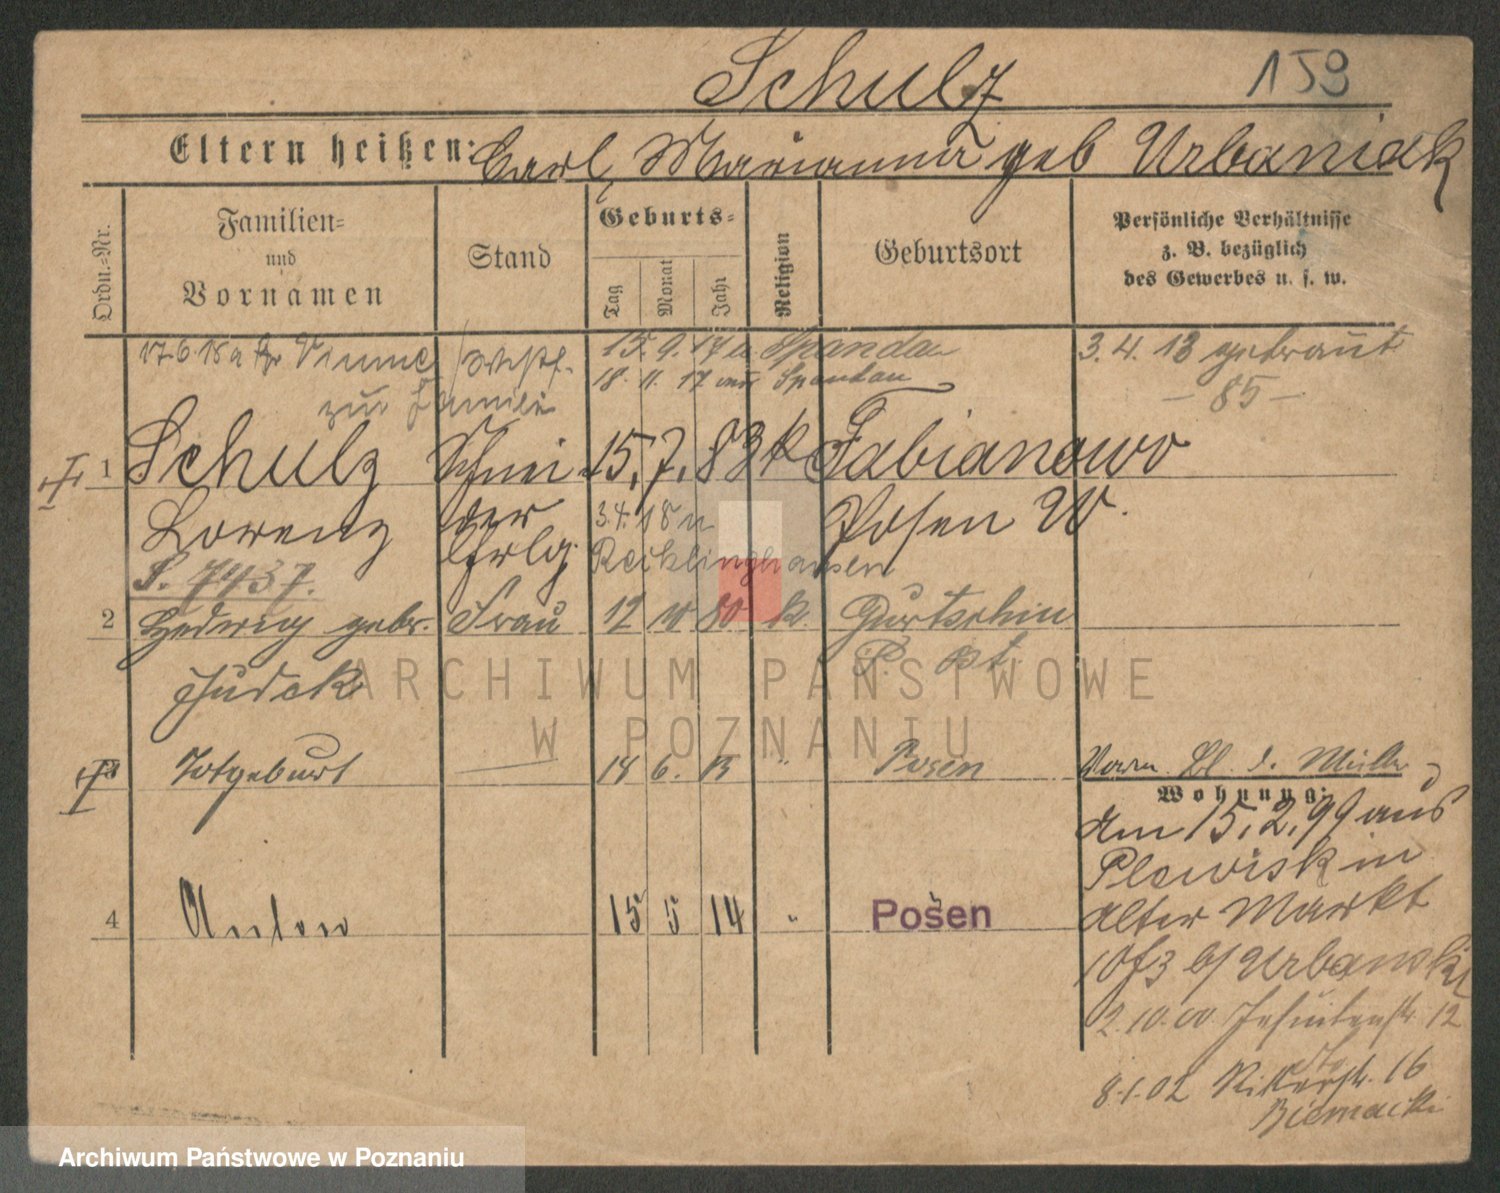 Schulz
159
Eltern heißen: Carl, Marianna geb Urbaniak
Ordn.-Nr.
Familien- und Vornamen
Stand
Geburts-
Tag
Monat
Jahr
Religion
Geburtsort
Persönliche Verhältnisse
z. B. bezüglich
des Gewerbes u. s. w.
17.6.18 a
zur Familie
15. 9. 17 n. Spandau
18. 11. 17 aus Spandau
3. 4. 13 getraut
- 85 -
1 Schulz Schnei- 15. 7. 83 k Fabianowo
Lorenz der Posen W.
Lhrlg. 3.4.18 n
Recklinghausen
S. 7437.
2 Hedwig gebr. Frau 12 10 80 k Gurtschin
Judek P. Ost
Totgeburt — 14 6. 13 " Posen
4 Anton 15 5 14 " Posen
Wohnung:
Am 15.2.99 aus
Plewisk in
Alter Markt
10 b/ Urbanski
2.10.00 Jesuitenstr. 12
8.1.02 Ritterstr. 16
Biernacki
ARCHIWUM PAŃSTWOWE
W POZNANIU
Archiwum Państwowe w Poznaniu